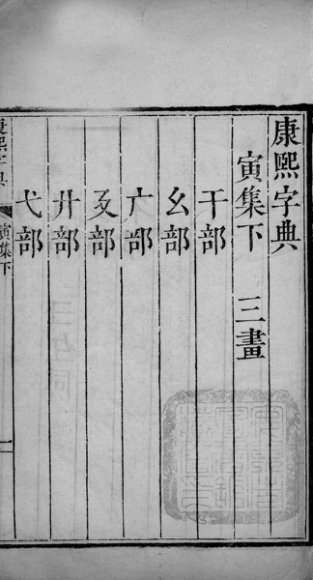 康熙字典
寅集下 三畫
干部
幺部
广部
廴部
廾部
弋部
康熙字典 寅集下